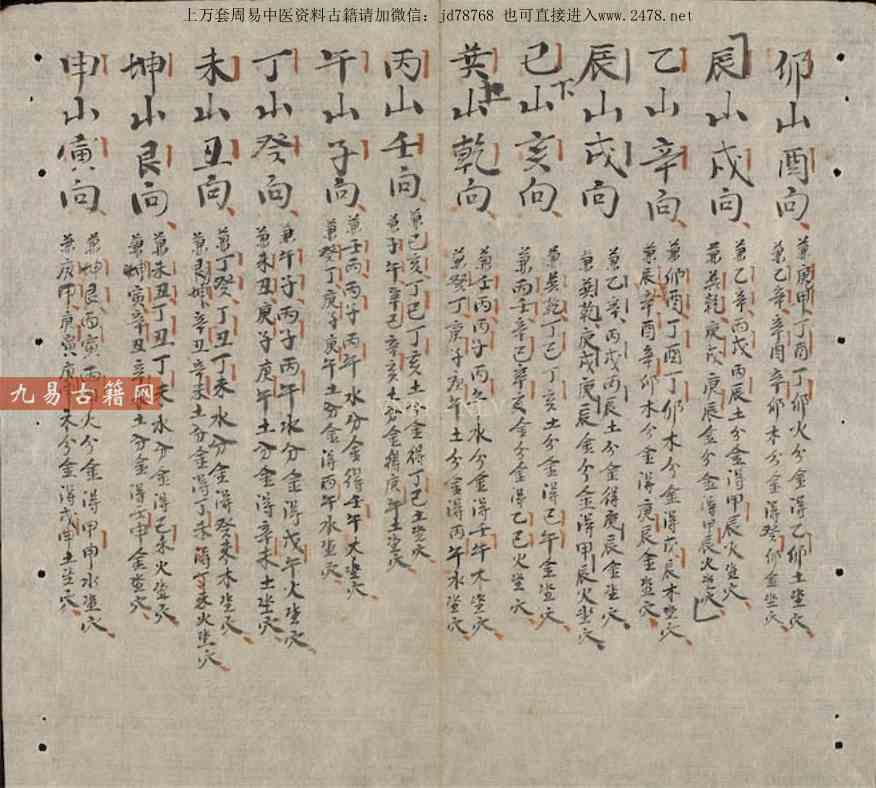 上万套周易中医资料古籍请加微信：jd78768 也可直接进入www.2478.net
卯山酉向
兼庚甲丁酉丁卯火分金得乙卯土坐穴
兼乙辛辛酉辛卯木分金得癸卯金坐穴
辰山戌向
兼乙辛丙戌丙辰土分金得甲辰火坐穴
兼巽乾庚戌庚辰金分金得甲辰火坐穴
乙山辛向
兼卯酉丁酉丁卯木分金得戊辰木坐穴
兼辰辛酉辛卯木分金得庚辰金坐穴
辰山戌向
兼乙辛丙戌丙辰土分金得庚辰金坐穴
兼巽乾庚戌庚辰金分金得甲辰火坐穴
巳山亥向
下
兼巽乾丁巳丁亥土分金得己午金坐穴
兼丙壬辛巳辛亥金分金得乙巳火坐穴
巽山乾向
上
兼壬丙丙子丙午水分金得壬午木坐穴
兼癸丁庚子庚午土分金得丙午水坐穴
丙山壬向
兼巳亥丁巳丁亥土分金得丁巳土坐穴
兼子午辛巳辛亥土分金得庚午土坐穴
午山子向
兼壬丙丙子丙午水分金得壬午木坐穴
兼癸丁庚子庚午土分金得丙午水坐穴
丁山癸向
兼午子丙子丙午水分金得戊午火坐穴
兼未丑庚子庚午土分金得辛未土坐穴
未山丑向
兼丁癸丁丑丁未水分金得癸未木坐穴
兼艮坤辛丑辛未土分金得丁未得丁未火坐穴
坤山艮向
兼未丑丁丑丁未水分金得己未火坐穴
兼坤寅辛丑辛未土分金得壬申金坐穴
申山寅向
兼坤艮丙寅丙火分金得甲申水坐穴
兼庚甲庚寅庚木分金得戊申土坐穴
九易古籍网